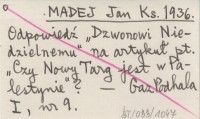 MADEJ Jan Ks. 1936.
Odpowiedź „Dzwonowi Nie-
dzielnemu" na artykuł pt.
„Czy Nowy Targ jest w Pa-
lestynie"? — Gaz. Podhala
I, nr 9.